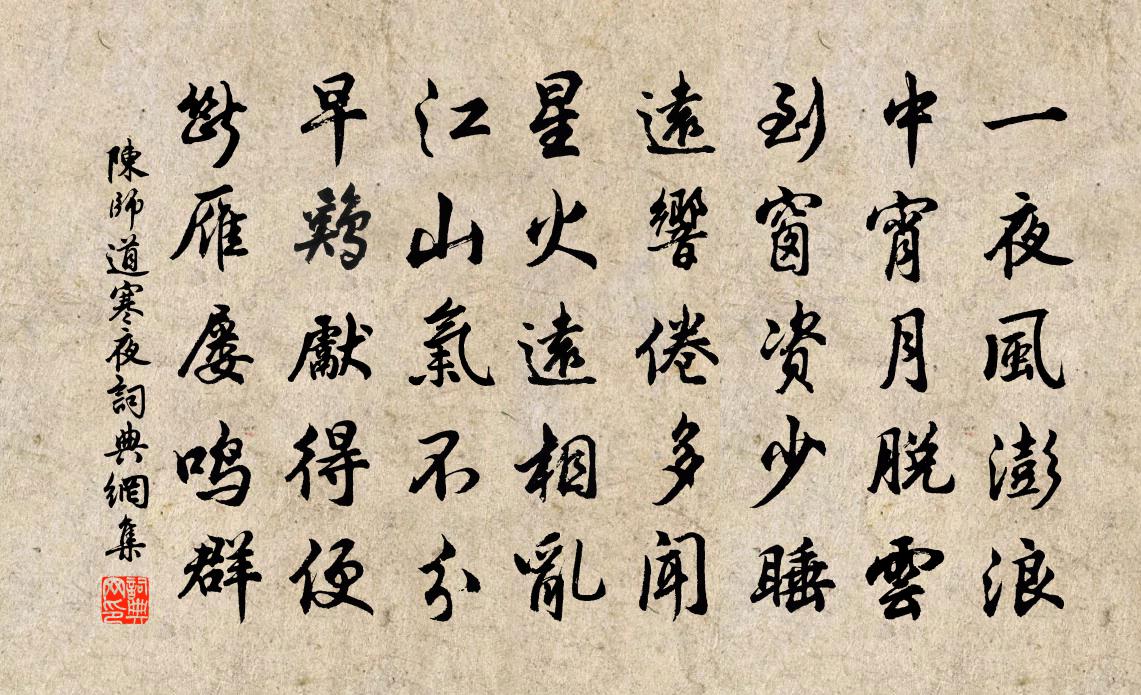 一夜風澎浪
中宵月脫雲
到窗資少睡
遠響倦多聞
星火遠相亂
江山氣不分
早鷄獻得便
斷雁屢鳴群
陳師道寒夜詞典網集
詞典网印